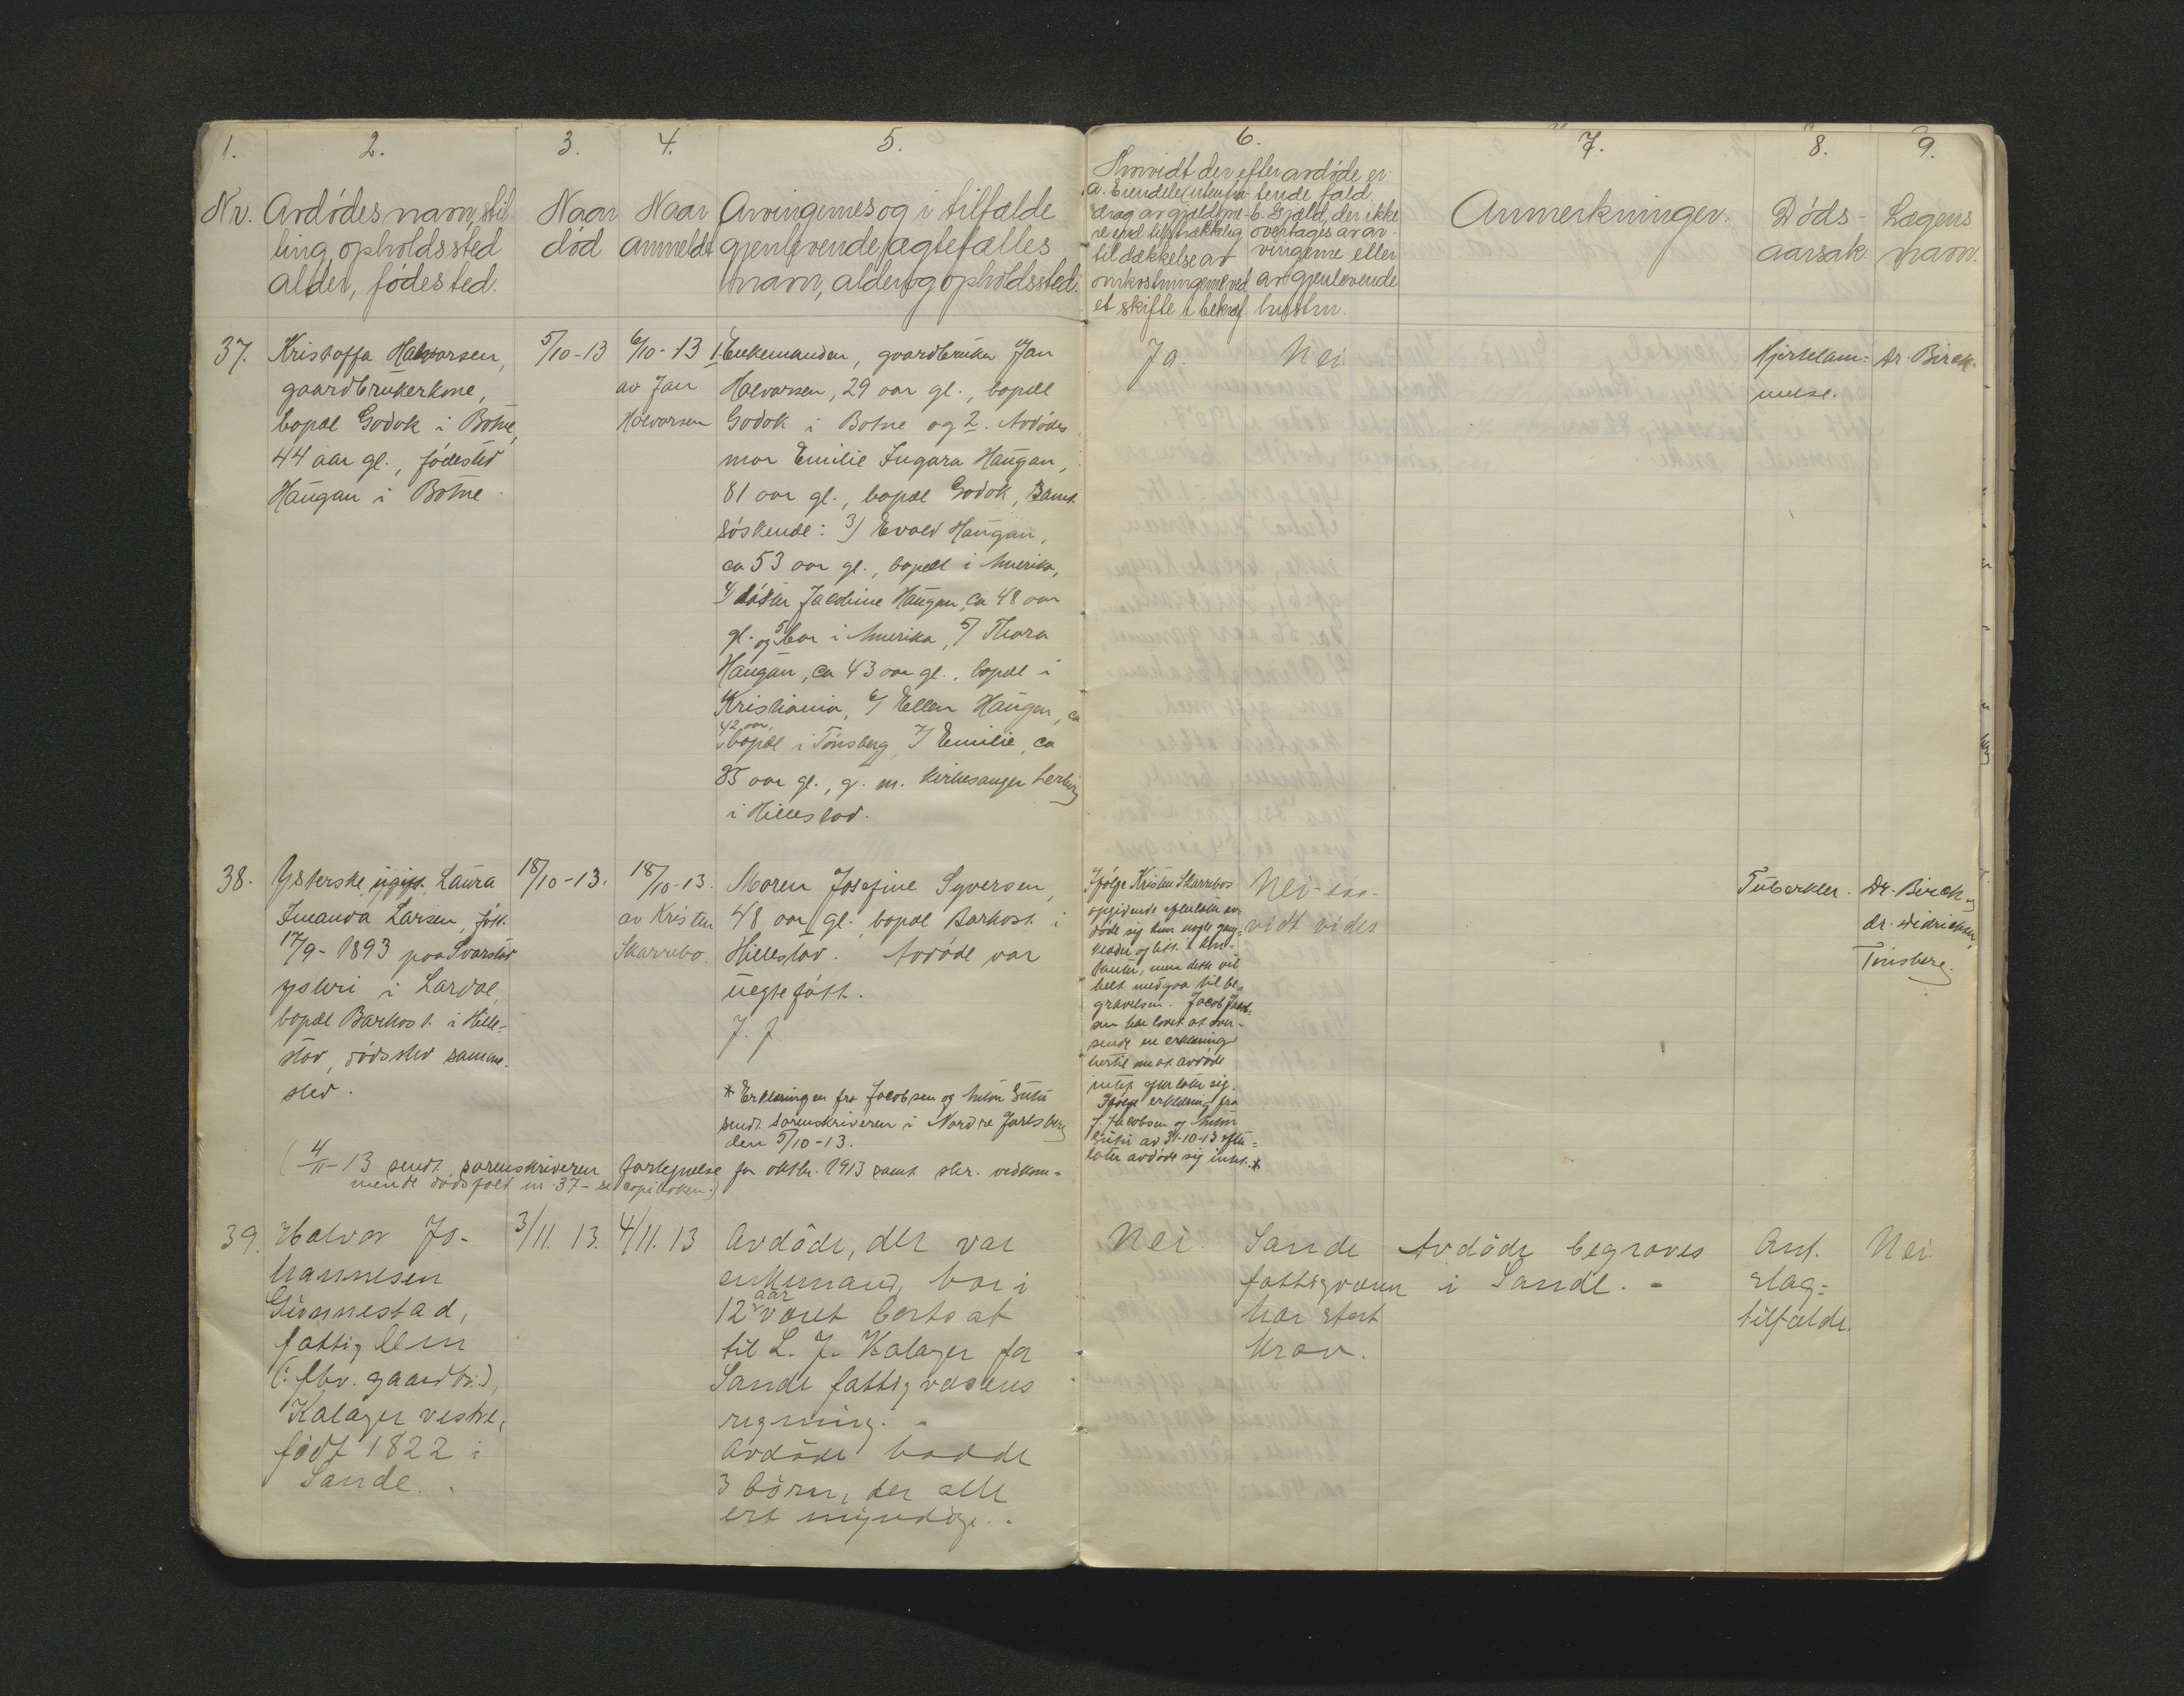 1. 2. 3. 4. 5. 6. 7. 8. 9.
Nr.
Avdødes navn, stil-
ling, opholdssted
alder, fødested.
Naar
død
Naar
anmeldt
Arvingernes og i tilfælde
gjenlevende ægtefælles
navn, alder og opholdssted.
Hvorvidt der efter avdøde er:
a. Eiendele (uten fra-
drag av gjeld) me-
re end tilstrækkelig
til dækkelse av
omkostningerne ved
et skifte i bekræf-
tende fald
b. Gjæld, der ikke
overtages av ar-
vingerne eller
av gjenlevende
hustru.
Anmerkninger.
Døds-
aarsak.
Lægens
navn.
37.
Kristoffa Halvorsen,
gaardbrukerkone,
bopæl Godok i Botne,
44 aar gl., fødested
Haugan i Botne.
5/10-13
6/10-13
av Jan
Halvorsen
1. Enkemanden, gaardbruker Jan
Halvorsen, 29 aar gl., bopæl
Godok i Botne og 2. Avdødes
mor Emilie Ingara Haugan,
81 aar gl., bopæl Godok, samt
søskende: 3) Evald Haugan,
ca 53 aar gl., bopæl i Amerika,
4) Jacobine Haugan, ca 48 aar
gl. og bor i Amerika, 5) Thora
Haugan, ca 43 aar gl., bopæl i
Kristiania, 6/ Ellen Haugan, ca
42 aar,
bopæl i Tønsberg, 7/ Emilie, ca
35 aar gl., g. m. kirkesanger
i Hillestad.
Ja.
Nei.
Hjertelam-
melse.
Dr. Birch.
38.
Ysterske, ugift, Laura
Amanda Larsen, født
17/9-1893 paa Svarstad
ysteri i Lardal,
bopæl Barkost. i Hille-
stad, dødssted samme-
sted.
18/10-13.
18/10-13.
av Kristen
Skarrebo.
Moren Josefine Syversen,
48 aar gl., bopæl Barkost. i
Hillestad. Avdøde var
uegte født.
J. J
* Erklæringen fra Jacobsen og hustru
sendt sorenskriveren i Nordre Jarlsberg
den 5/10-13.
Ifølge Kristen Skarrebos
opgivende efterlater av-
døde sig kun nogle gang-
klæder og litt i kon-
tanter, men dette vil
helt medgaa til be-
gravelsen. Jacob Jacob-
sen har lovet at over-
sende en erklæring
hertil om at avdøde
intet efterlater sig.
Ifølge erklæring fra
J. Jacobsen og hustru
av 31-10-13 efter-
later avdøde sig intet.*
Nei - saa-
vidt vides
Tuberkler.
Dr. Birch og
dr. Didriksen,
Tønsberg.
(4/11-13 sendt sorenskriveren fortegnelse for oktbr. 1913 samt skr. vedkom-
mende dødsfald nr. 37 - se copiboken.)
39.
Halvor Jo-
hannesen
Gunnestad,
fattiglem
(: fhv. gaardbr.),
Kalager vestre,
født 1822 i
Sande.
3/11. 13.
4/11. 13
Avdøde, der var
enkemand, har i
12 aar været bortsat
til L. J. Kalager for
Sande fattigvæsens
regning. -
Avdøde hadde
3 børn, der alle
ere myndige. -
Nei.
Sande
fattigvæsen
har stort
krav.
Avdøde begraves
i Sande. -
Ant.
slag-
tilfælde.
Nei